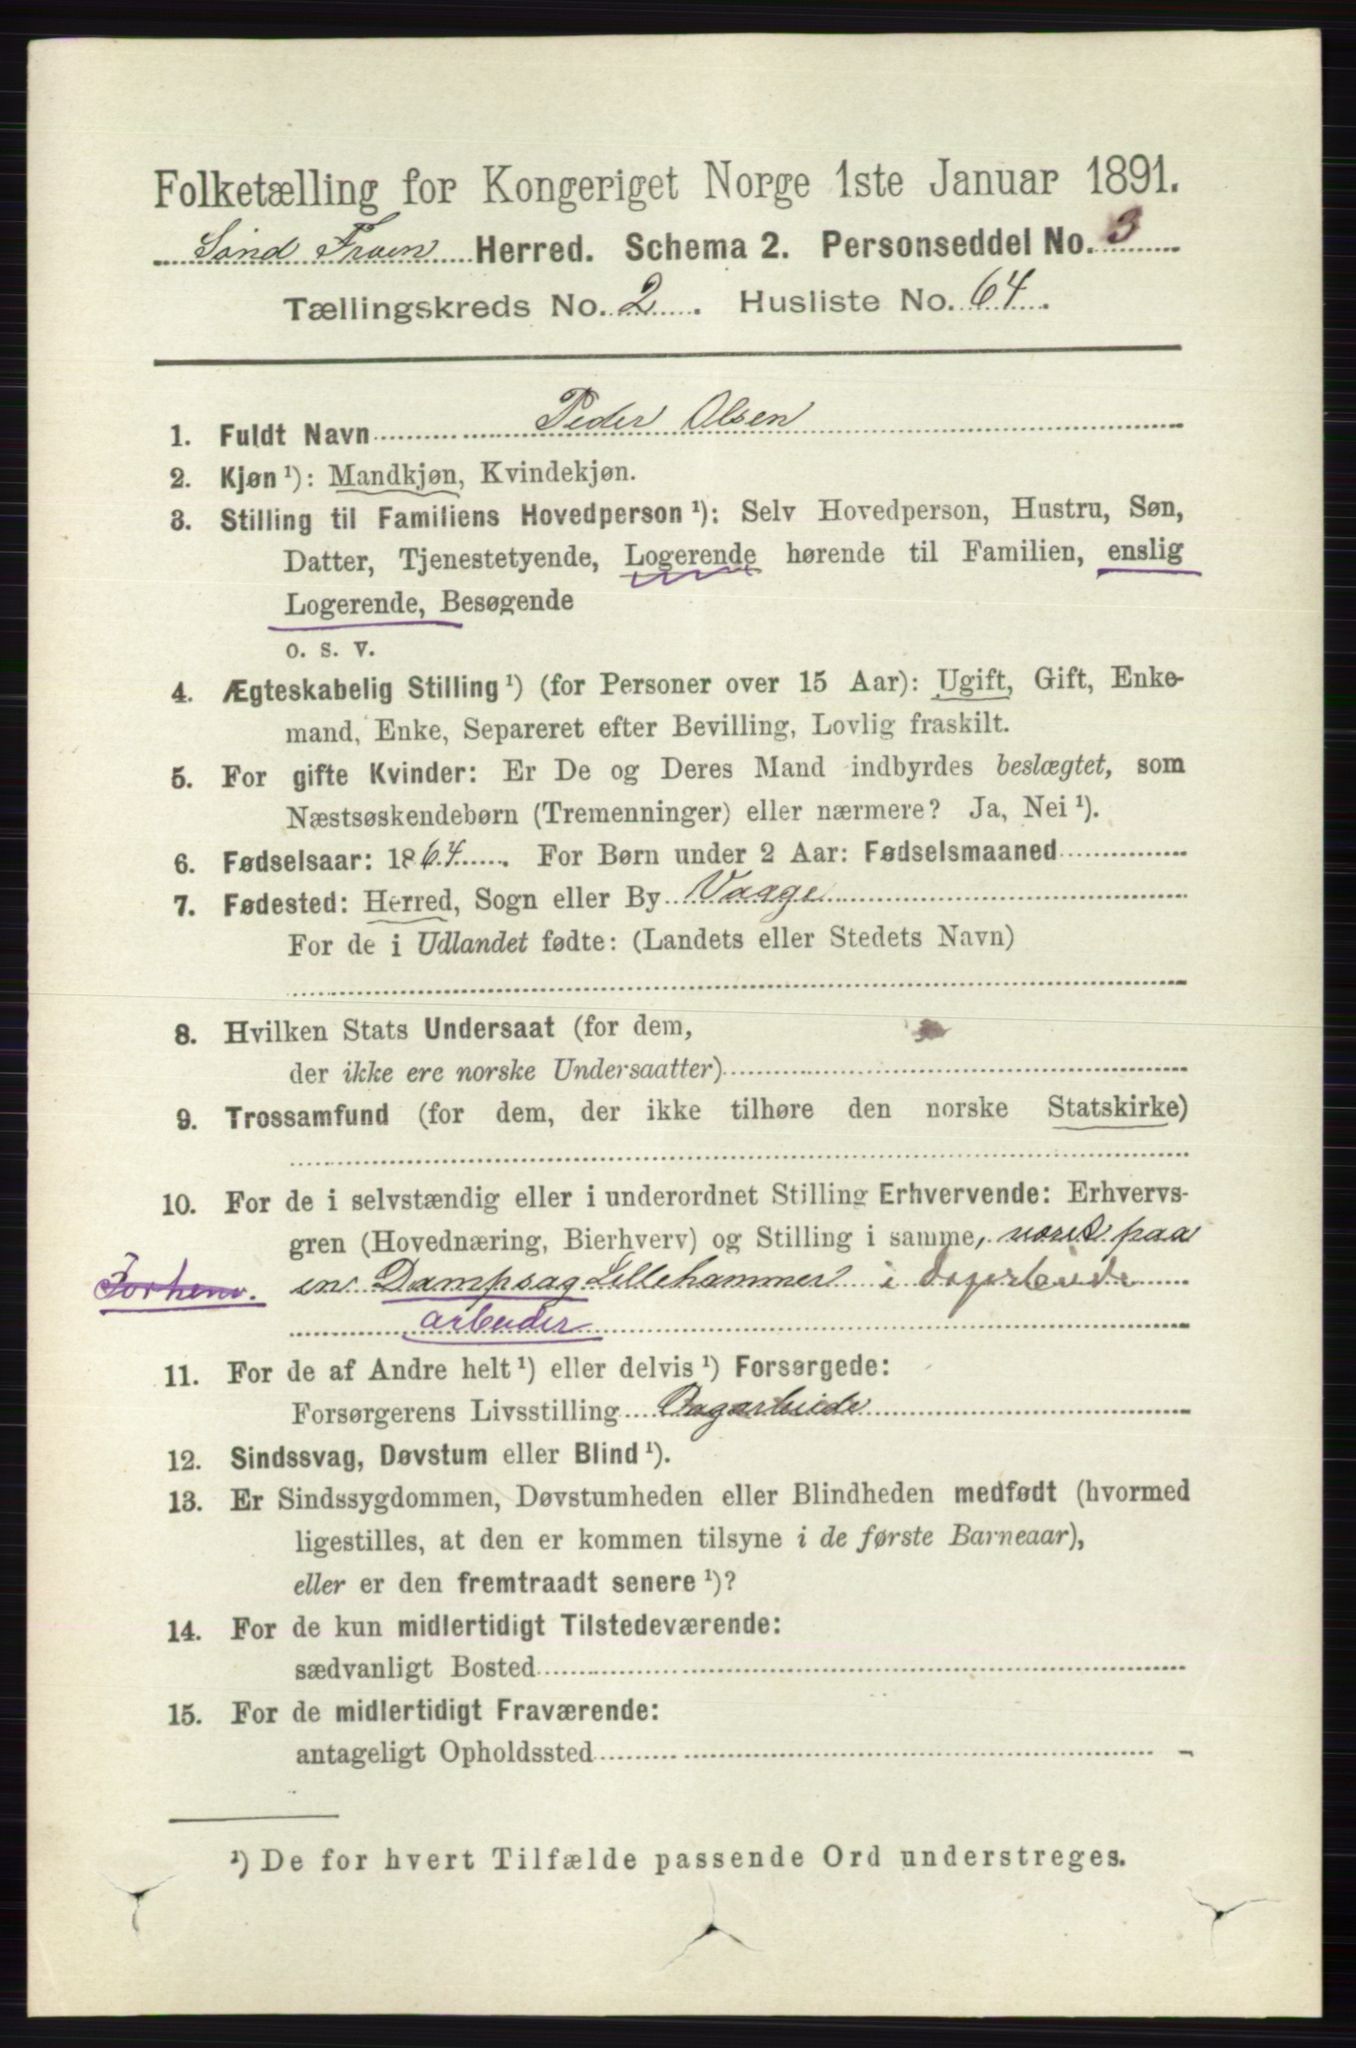 Folketælling for Kongeriget Norge 1ste Januar 1891.
Sønd Froen Herred. Schema 2. Personseddel No. 3
Tællingskreds No. 2. Husliste No. 64.
1. Fuldt Navn Peder Olsen
2. Kjøn ¹): Mandkjøn, Kvindekjøn.
3. Stilling til Familiens Hovedperson ¹): Selv Hovedperson, Hustru, Søn,
Datter, Tjenestetyende, Logerende hørende til Familien, enslig
Logerende, Besøgende
o. s. v.
4. Ægteskabelig Stilling ¹) (for Personer over 15 Aar): Ugift, Gift, Enke-
mand, Enke, Separeret efter Bevilling, Lovlig fraskilt.
5. For gifte Kvinder: Er De og Deres Mand indbyrdes beslægtet, som
Næstsøskendebørn (Tremenninger) eller nærmere? Ja, Nei ¹).
6. Fødselsaar: 1864. For Børn under 2 Aar: Fødselsmaaned
7. Fødested: Herred, Sogn eller By Vaage
For de i Udlandet fødte: (Landets eller Stedets Navn)
8. Hvilken Stats Undersaat (for dem,
der ikke ere norske Undersaatter)
9. Trossamfund (for dem, der ikke tilhøre den norske Statskirke)
10. For de i selvstændig eller i underordnet Stilling Erhvervende: Erhvervs-
gren (Hovednæring, Bierhverv) og Stilling i samme, været paa
Forhenv. en Dampsag Lillehammer i Dagarbeide
arbeider
11. For de af Andre helt ¹) eller delvis ¹) Forsørgede:
Forsørgerens Livsstilling Dagarbeide
12. Sindssvag, Døvstum eller Blind ¹).
13. Er Sindssygdommen, Døvstumheden eller Blindheden medfødt (hvormed
ligestilles, at den er kommen tilsyne i de første Barneaar),
eller er den fremtraadt senere ¹)?
14. For de kun midlertidigt Tilstedeværende:
sædvanligt Bosted
15. For de midlertidigt Fraværende:
antageligt Opholdssted
¹) De for hvert Tilfælde passende Ord understreges.